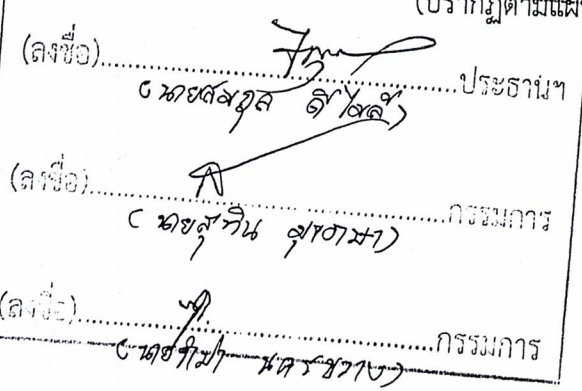 (ปรากฏตามแผ
(ลงชื่อ)....................ประธานฯ
(นายสมกุล ดีไพล้)
(ลงชื่อ)....................กรรมการ
(นายสุทิน
(ลงชื่อ)....................กรรมการ
(นายคำปา นครขวาง)